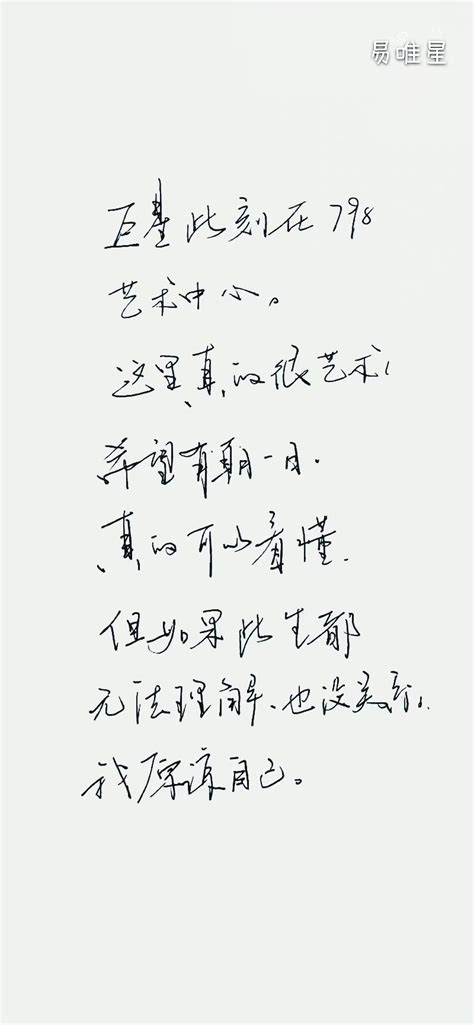 易唯星
巨基此刻在798
艺术中心。
这里真的很艺术，
希望有朝一日.
真的可以看懂.
但如果此生都
无法理解、也没关系，
我原谅自己。